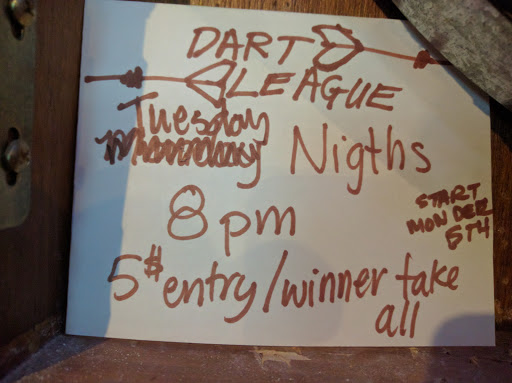 DART
LEAGUE
Tuesday
Monday Nigths
8 pm
START
MONDER
5TH
5$ entry/winner take
all